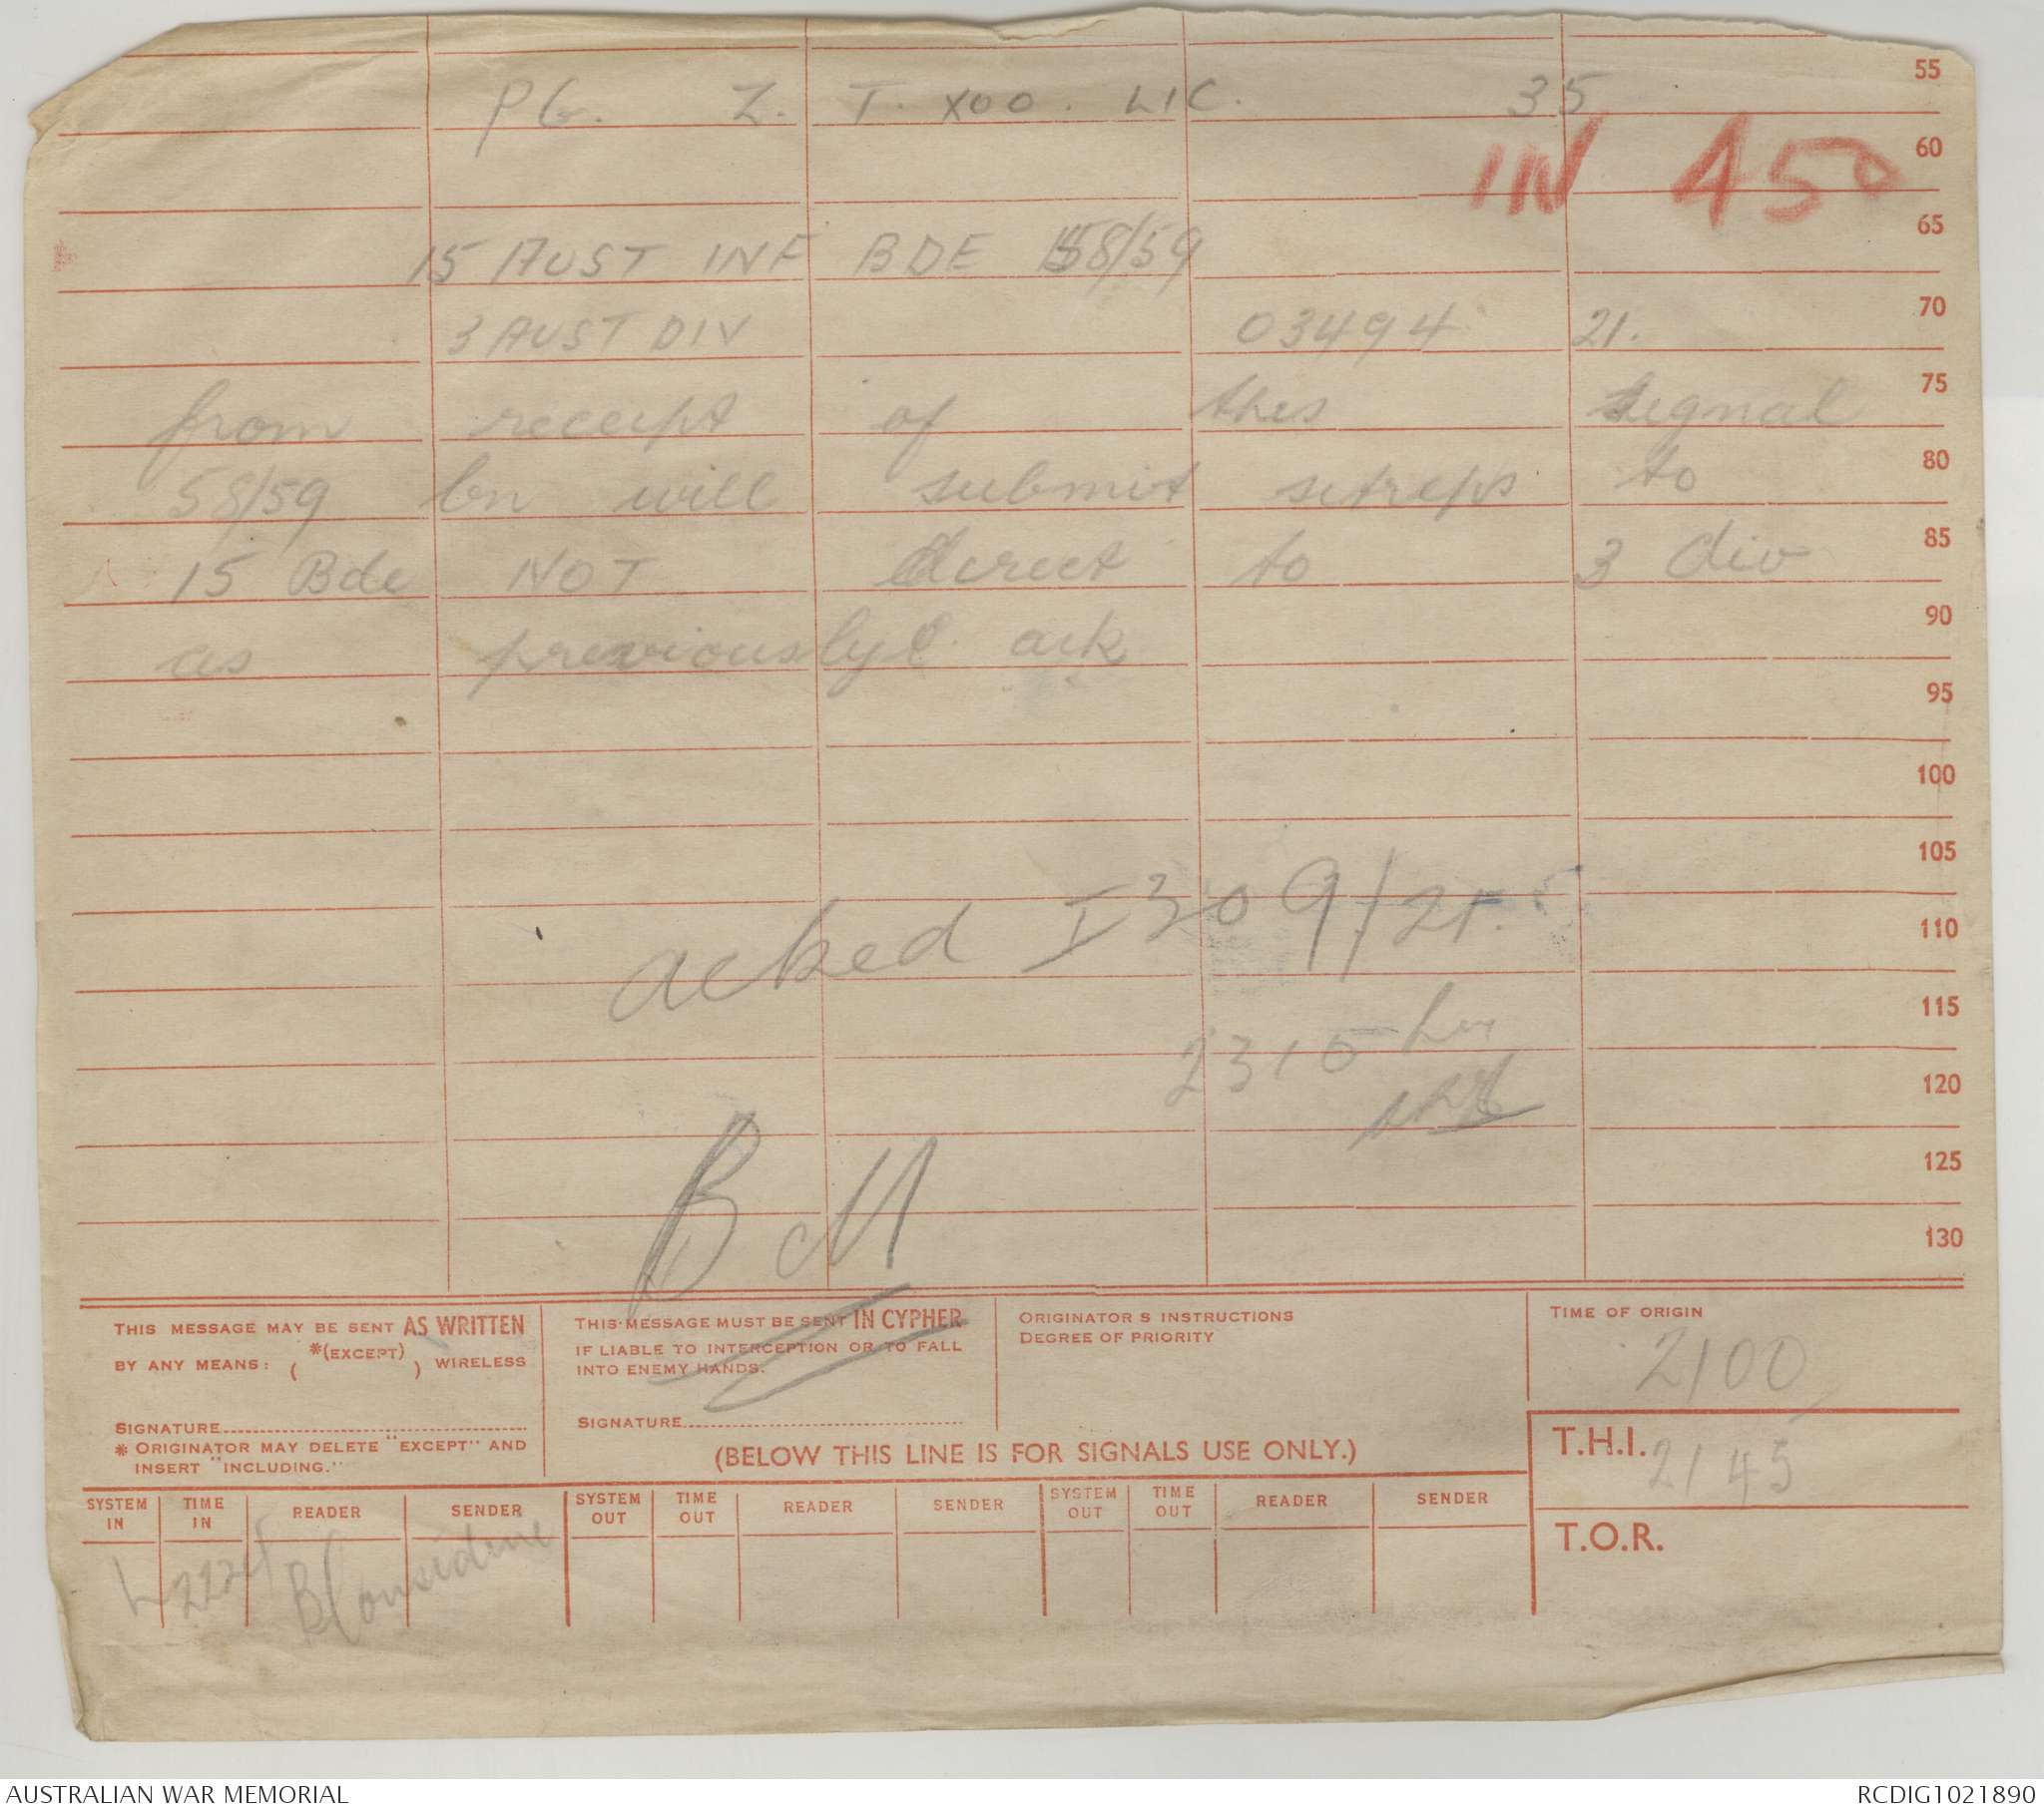 55
PG. Z. T. XOO. LIC. 35
60
IN 450
65
15 AUST INF BDE 58/59
70
3 AUST DIV 03494 21.
75
from receipt of this signal
80
58/59 bn will submit sitreps to
85
15 Bde NOT direct to 3 div
90
as previously ack
95
100
105
acked I 309/21.
110
115
2315 hrs
120
125
BM
130
THIS MESSAGE MAY BE SENT AS WRITTEN
BY ANY MEANS: ( *(EXCEPT) ) WIRELESS
SIGNATURE
* ORIGINATOR MAY DELETE "EXCEPT" AND
INSERT "INCLUDING."
THIS MESSAGE MUST BE SENT IN CYPHER
IF LIABLE TO INTERCEPTION OR TO FALL
INTO ENEMY HANDS.
SIGNATURE
ORIGINATOR S INSTRUCTIONS
DEGREE OF PRIORITY
TIME OF ORIGIN
2100
(BELOW THIS LINE IS FOR SIGNALS USE ONLY.)
T.H.I. 2145
T.O.R.
SYSTEM IN TIME IN READER SENDER SYSTEM OUT TIME OUT READER SENDER SYSTEM OUT TIME OUT READER SENDER
L BConsidine
AUSTRALIAN WAR MEMORIAL RCDIG1021890